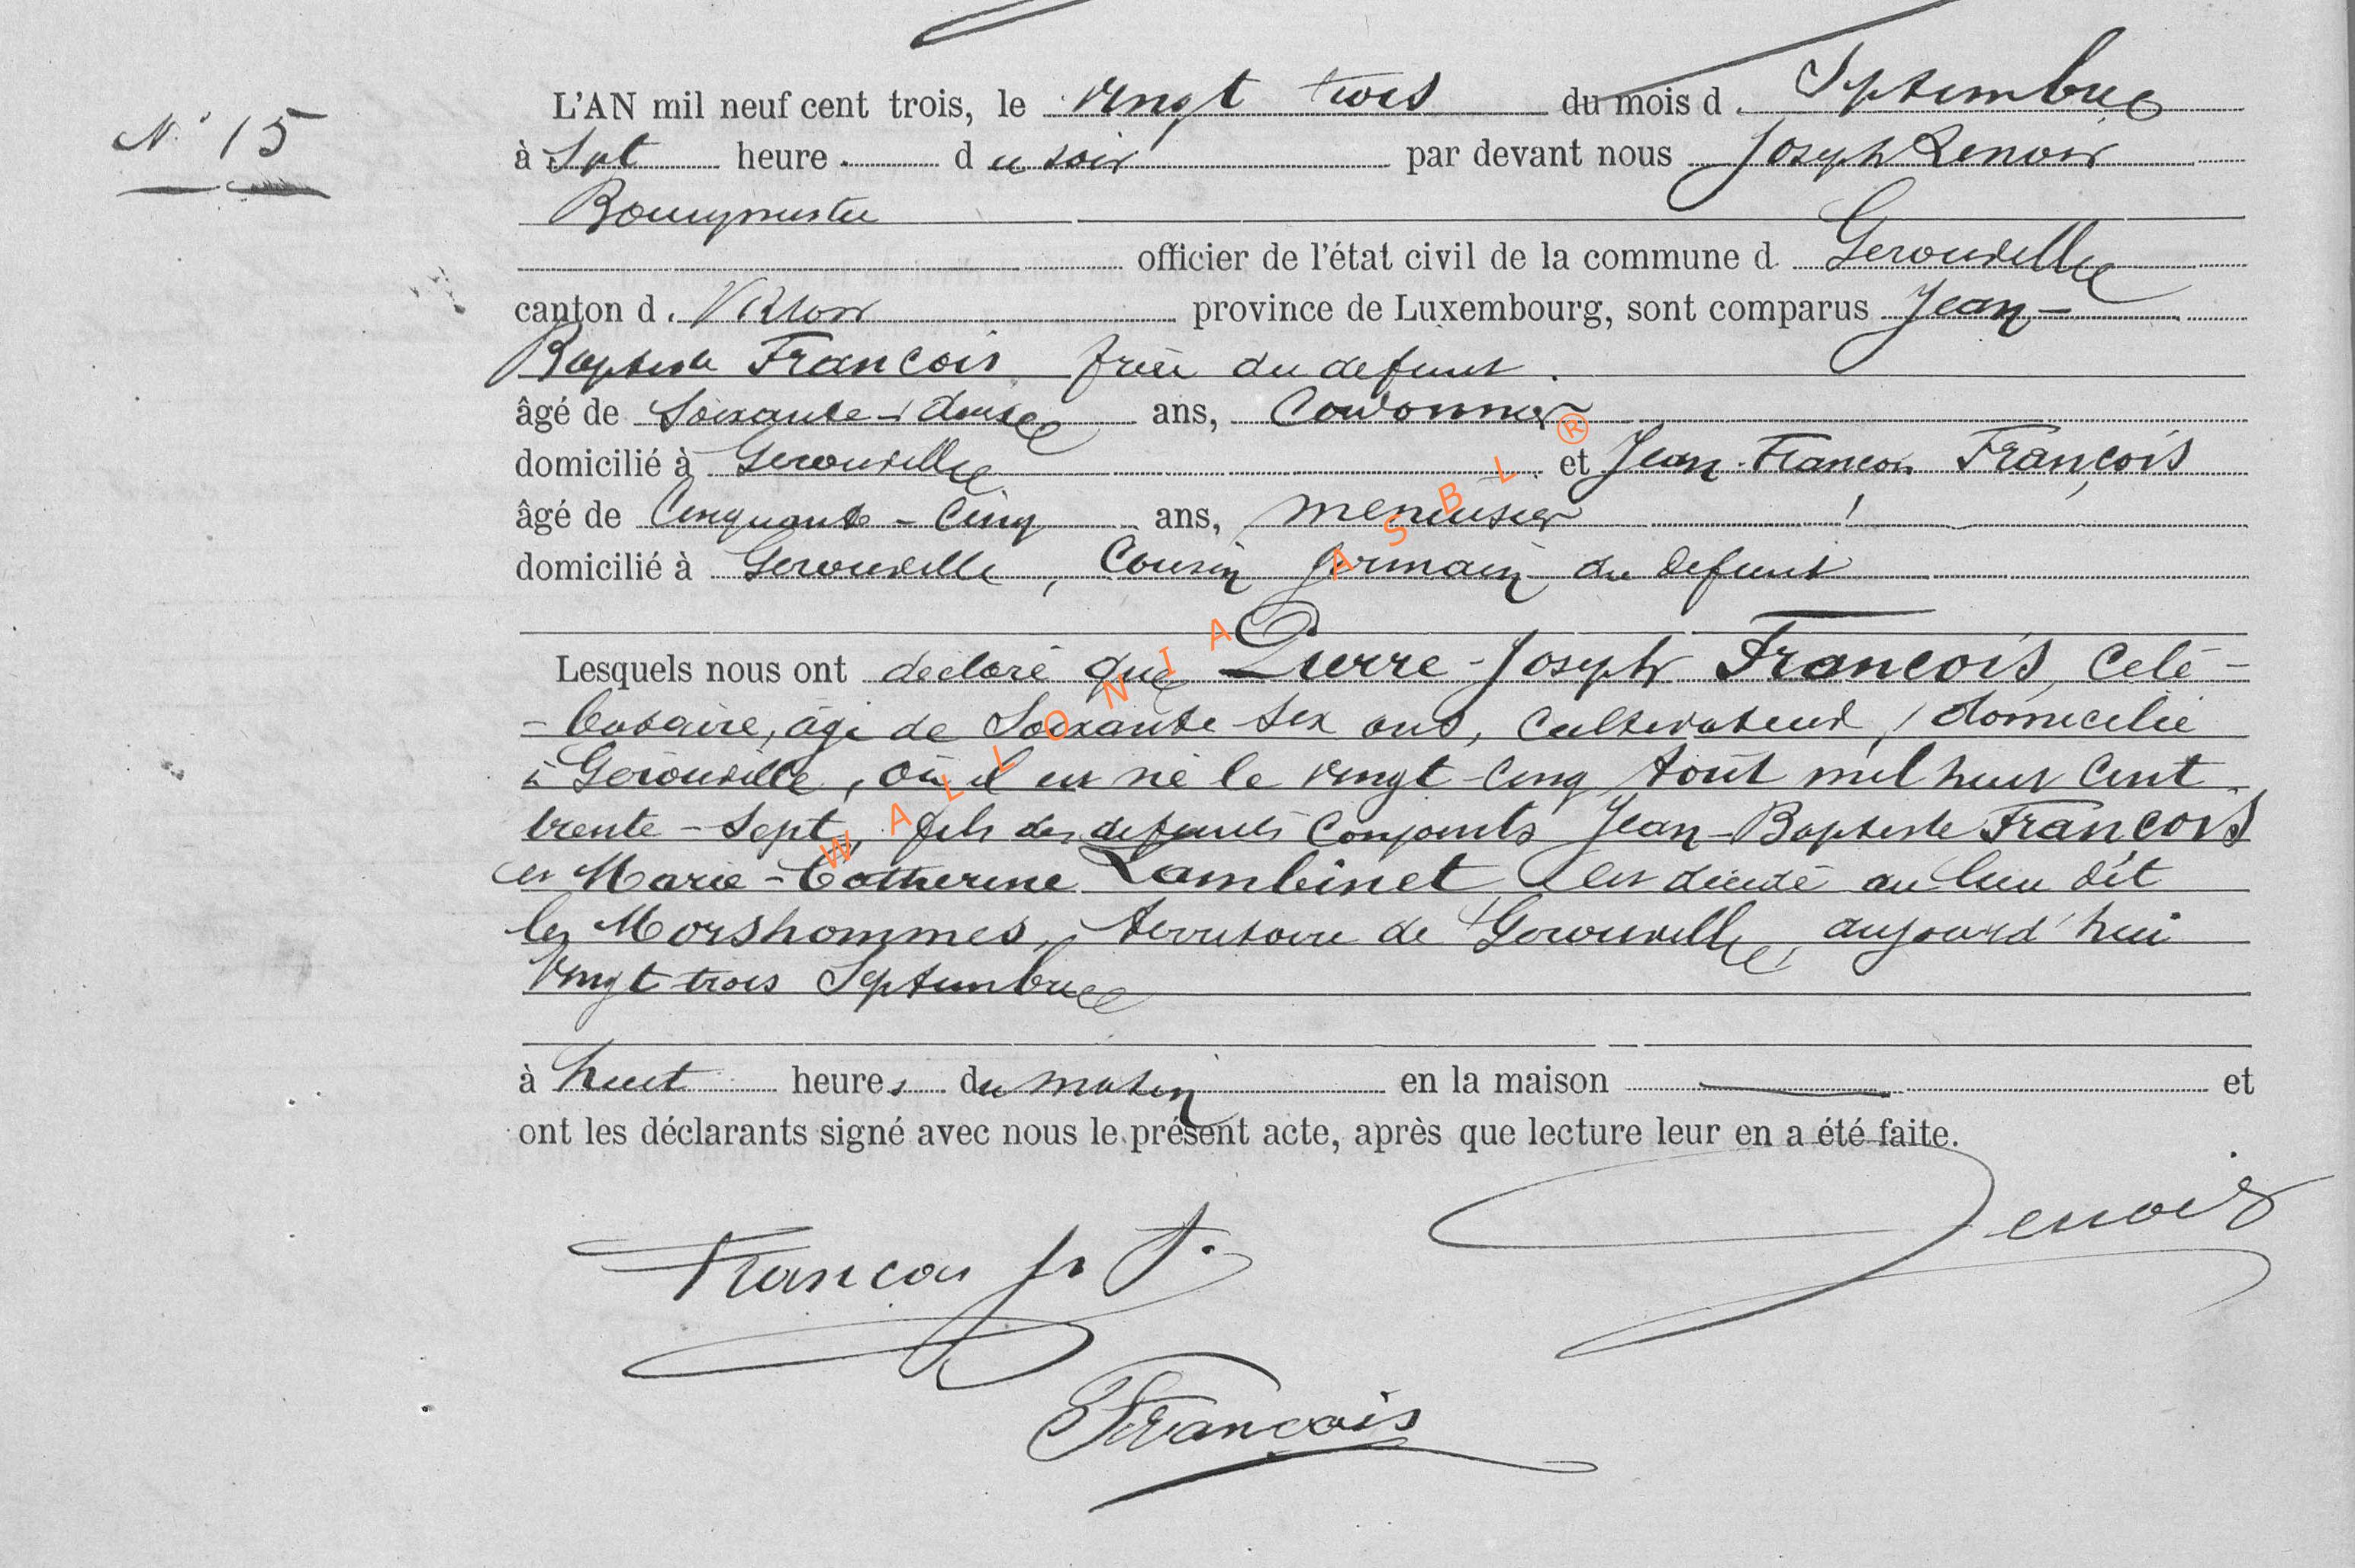 L'AN mil neuf cent trois, le vingt trois du mois d Septembre
N° 15
à Sept heure d u soir par devant nous Joseph Lenoir
Bourgmestre
officier de l'état civil de la commune d Gerouville
canton d Virton province de Luxembourg, sont comparus Jean-
Baptiste Francois frère du defunt.
âgé de Soixante-douze ans, Cordonnier
domicilié à Gerouville et Jean-Francois François
âgé de Cinquante-Cinq ans, menuisier
domicilié à Gerouville, Cousin germain du defunt
Lesquels nous ont déclaré que Pierre-Joseph Francois, Céli-
-bataire, âgé de Soixante six ans, Cultivateur, domicilié
à Gérouville, où il est né le vingt-cinq Août mil huit Cent
trente-Sept, fils des défunts Conjoints Jean-Baptiste Francois
et Marie-Catherine Lambinet, est décédé au lieu dit
les Morshommes, territoire de Gerouville, aujourd'hui
Vingt trois Septembre
à huit heures du matin en la maison et
ont les déclarants signé avec nous le présent acte, après que lecture leur en a été faite.
Lenoir
Francois
François
WALLONIA ASBL ®